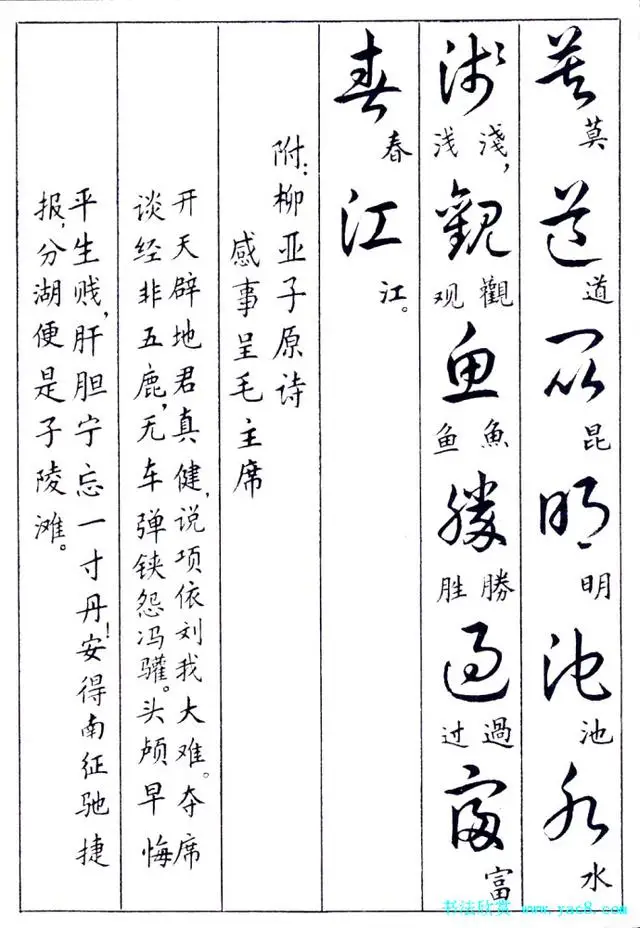 莫道昆明池水
莫道昆明池水
淺觀鱼勝過富
淺,觀魚勝過富
浅观鱼胜过
春江
春江。
附:柳亚子原诗
感事呈毛主席
开天辟地君真健,说项依刘我大难。夺席
谈经非五鹿,无车弹铗怨冯驩。头颅早悔
平生贱,肝胆宁忘一寸丹!安得南征驰捷
报,分湖便是子陵滩。
书法欣赏 www.yac8.com